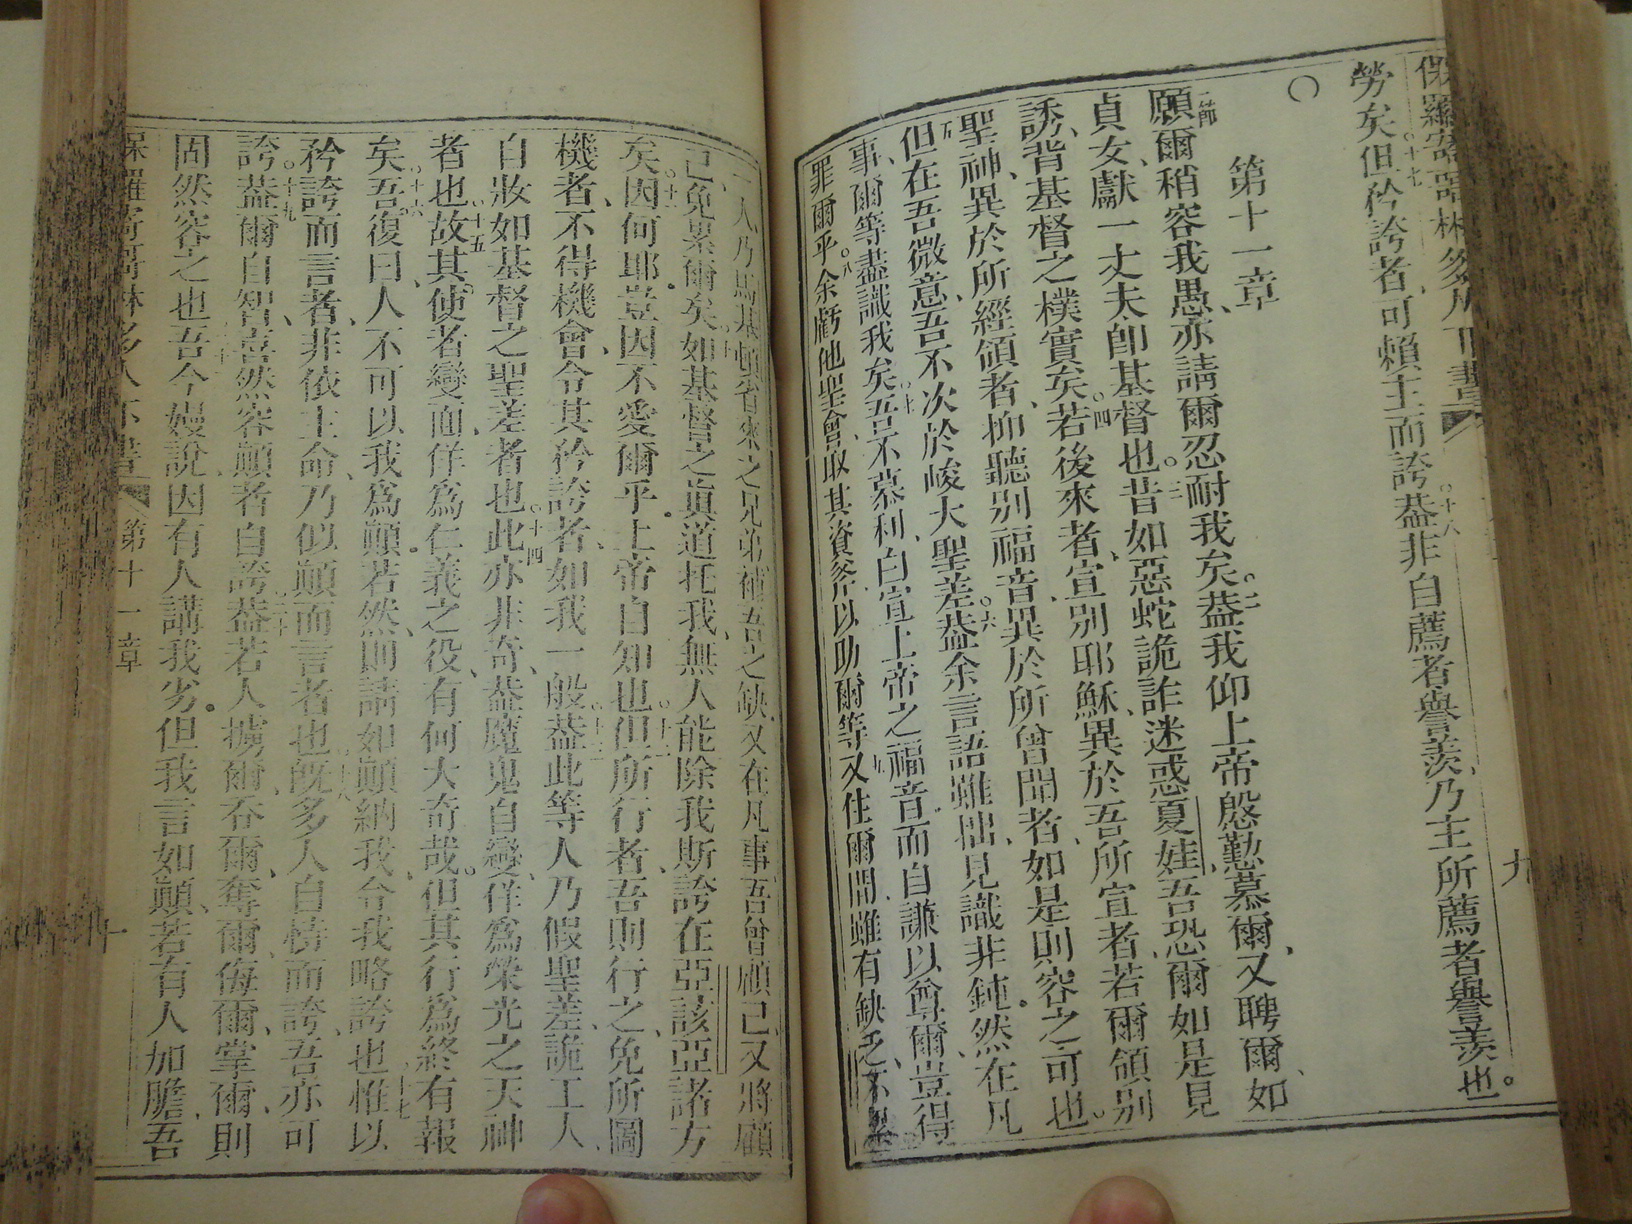 勞矣但矜誇者、可賴主而誇。○十七 蓋非自薦者譽羨、乃主所薦者譽羨也。○十八
○
第十一章
一節 願爾稍容我愚、亦請爾忍耐我矣。○二 蓋我仰上帝慇懃慕爾、又聘爾、如
貞女獻一丈夫、卽基督也。○三 昔如惡蛇詭詐迷惑夏娃、吾恐爾如是見
誘、背基督之樸實矣。○四 若後來者、宣別耶穌、異於吾所宣者、若爾領別
聖神、異於所經領者、抑聽別福音、異於所曾聞者、如是則容之可也。
○五 但在吾微意、吾不次於峻大聖差。○六 蓋余言語雖拙、見識非鈍、然在凡
事、爾等盡識我矣。○七 吾不慕利、白宣上帝之福音、而自謙以尊爾、豈得
罪爾乎。○八 余虧他聖會、取其資斧、以助爾等。○九 又住爾間、雖有缺乏、不累
一人、乃馬其頓省來之兄弟補吾之缺、又在凡事、吾曾顧己、又將顧
己免累爾矣。○十 如基督之眞道抂我、無人能除我斯誇在亞該亞諸方
矣。○十一 因何耶、豈因不愛爾乎。上帝自知也。○十二 但所行者、吾則行之、免所圖
機者、不得機會、令其矜誇者、如我一般。○十三 蓋此等人乃假聖差、詭工人、
自妝如基督之聖差者也。○十四 此亦非奇、蓋魔鬼自變、佯爲榮光之天神
者也。○十五 故其使者變面、佯爲仁義之役、有何大奇哉。但其行爲終有報
矣。○十六 吾復曰、人不可以我爲顛。若然、則請如顛納我、令我略誇也。○十七 惟以
矜誇而言者、非依主命、乃似顛而言者也。○十八 旣多人自恃而誇、吾亦可
誇。○十九 蓋爾自智、喜然容顛者自誇。○二十 蓋若人擄爾、吞爾、奪爾、侮爾、掌爾、則
固然容之也。吾今嫚說、因有人講我劣。但我言如顛、若有人加膽、吾
第十一章